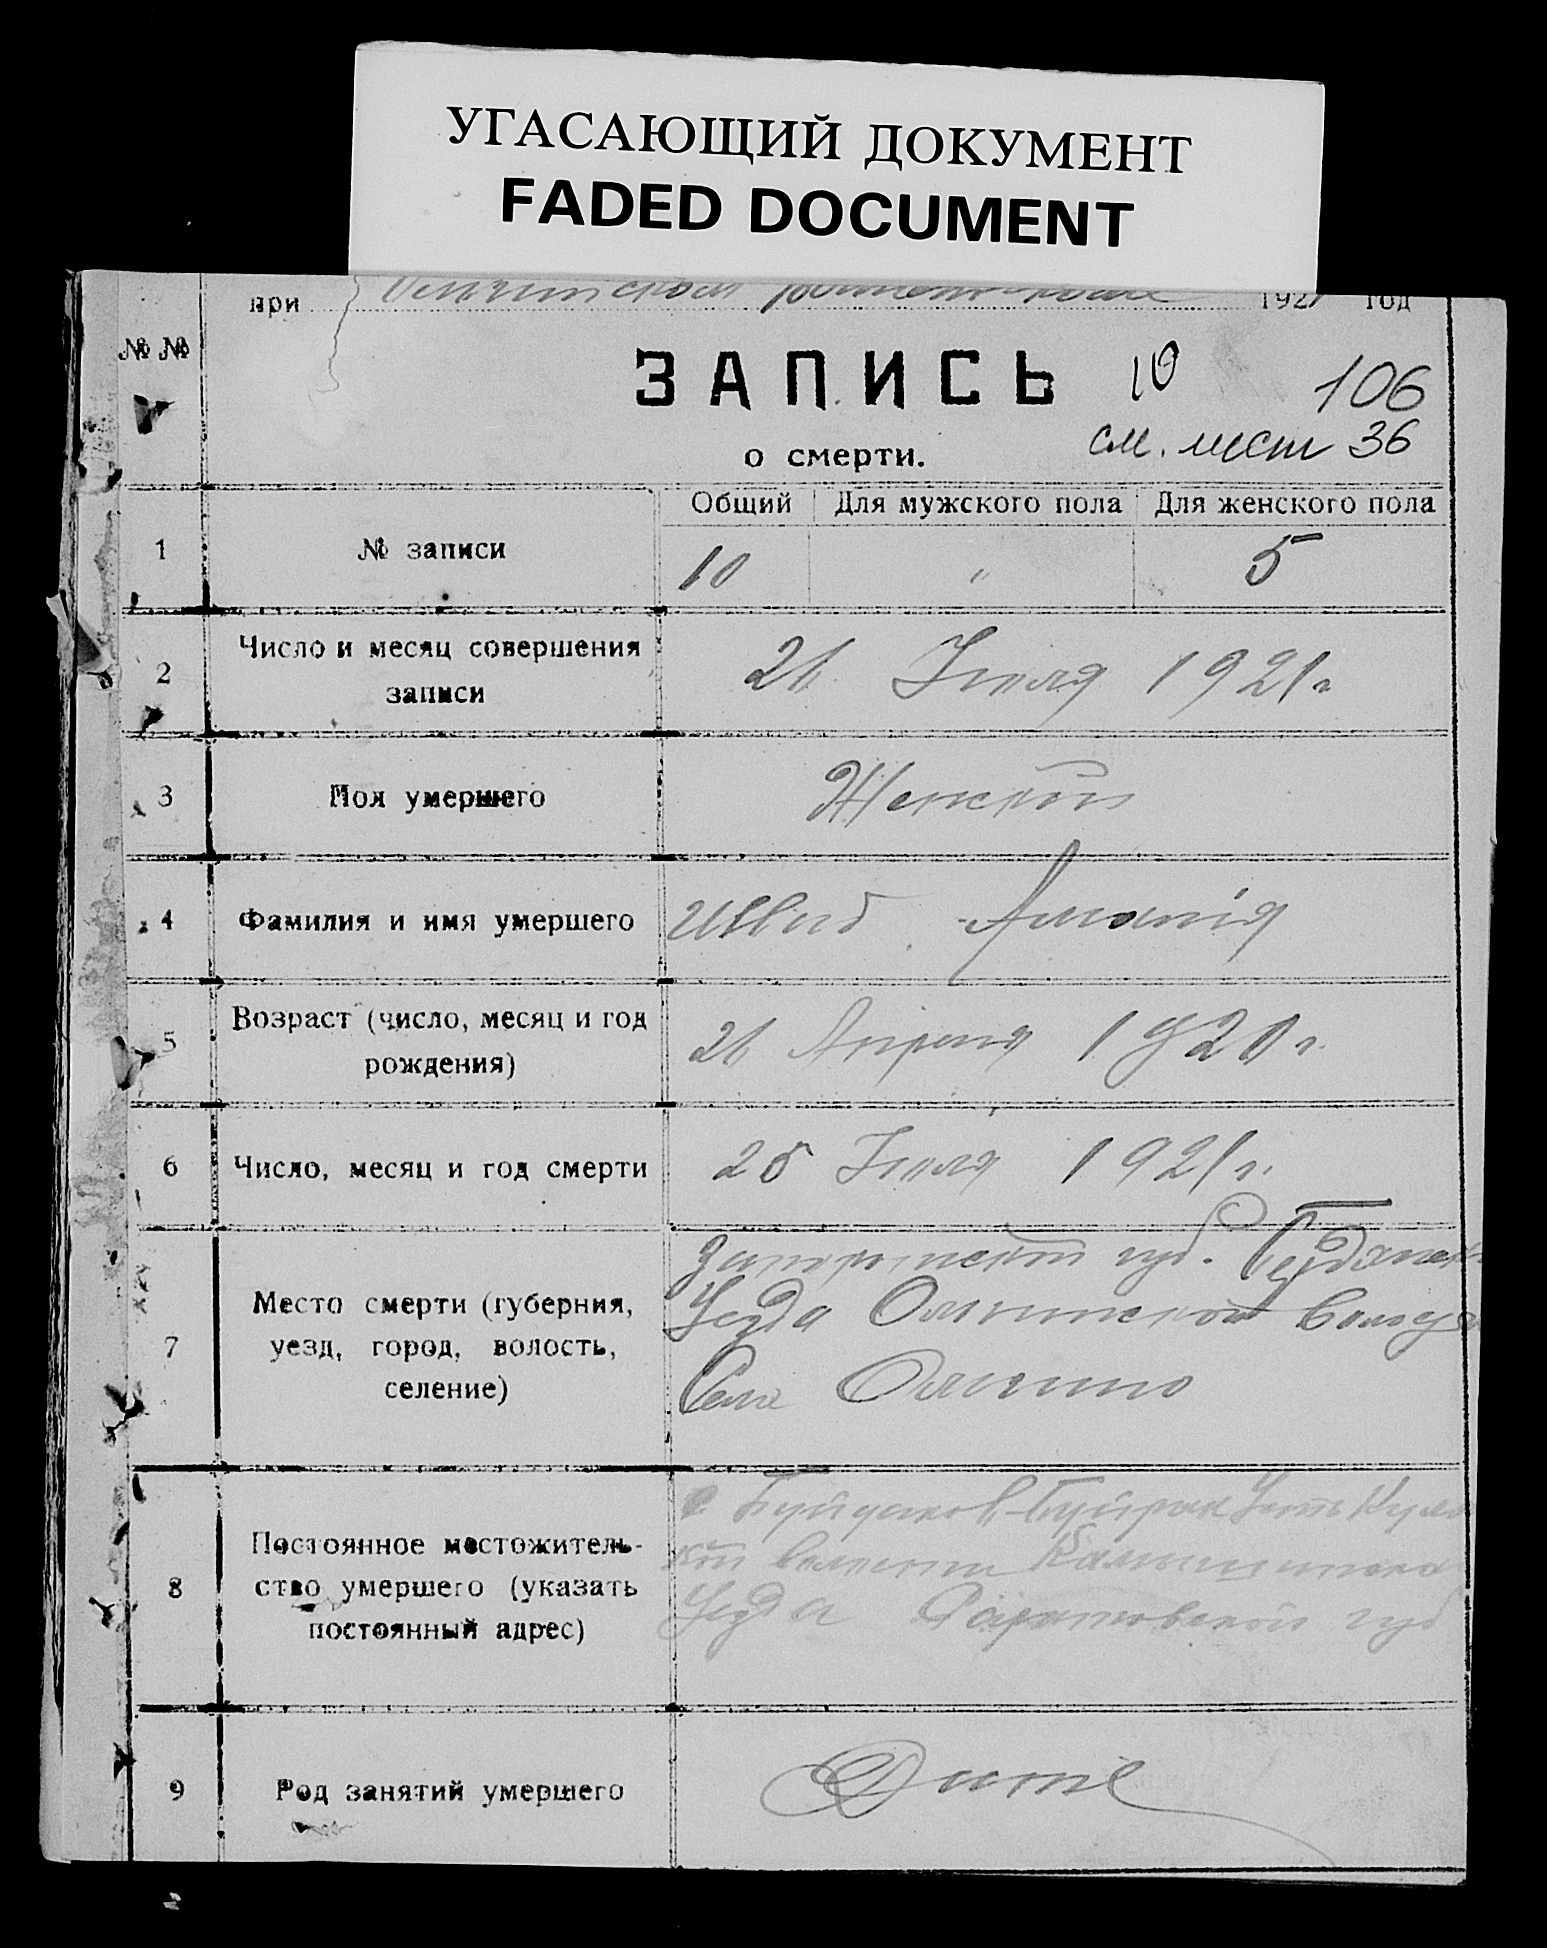 УГАСАЮЩИЙ ДОКУМЕНТ
FADED DOCUMENT
при 1921 год
№№
ЗАПИСЬ 10 106
о смерти. см. лист 36
Общий Для мужского пола Для женского пола
1 № записи 10 " 5
2 Число и месяц совершения
записи
26 Июля 1921 г
3 Пол умершего Женской
4 Фамилия и имя умершего Швид Амалия
5 Возраст (число, месяц и год
рождения)
26 Апреля 1920 г.
6 Число, месяц и год смерти 25 Июля 1921 г.
7 Место смерти (губерния,
уезд, город, волость,
селение)
губ. Бердянск
Уезда
Села
8 Постоянное местожитель-
ство умершего (указать
постоянный адрес)
с. Буйдаков-Буйрак Усть Кула
кой волости Камышинска
Уезда Саратовской губ
9 Род занятий умершего Дите